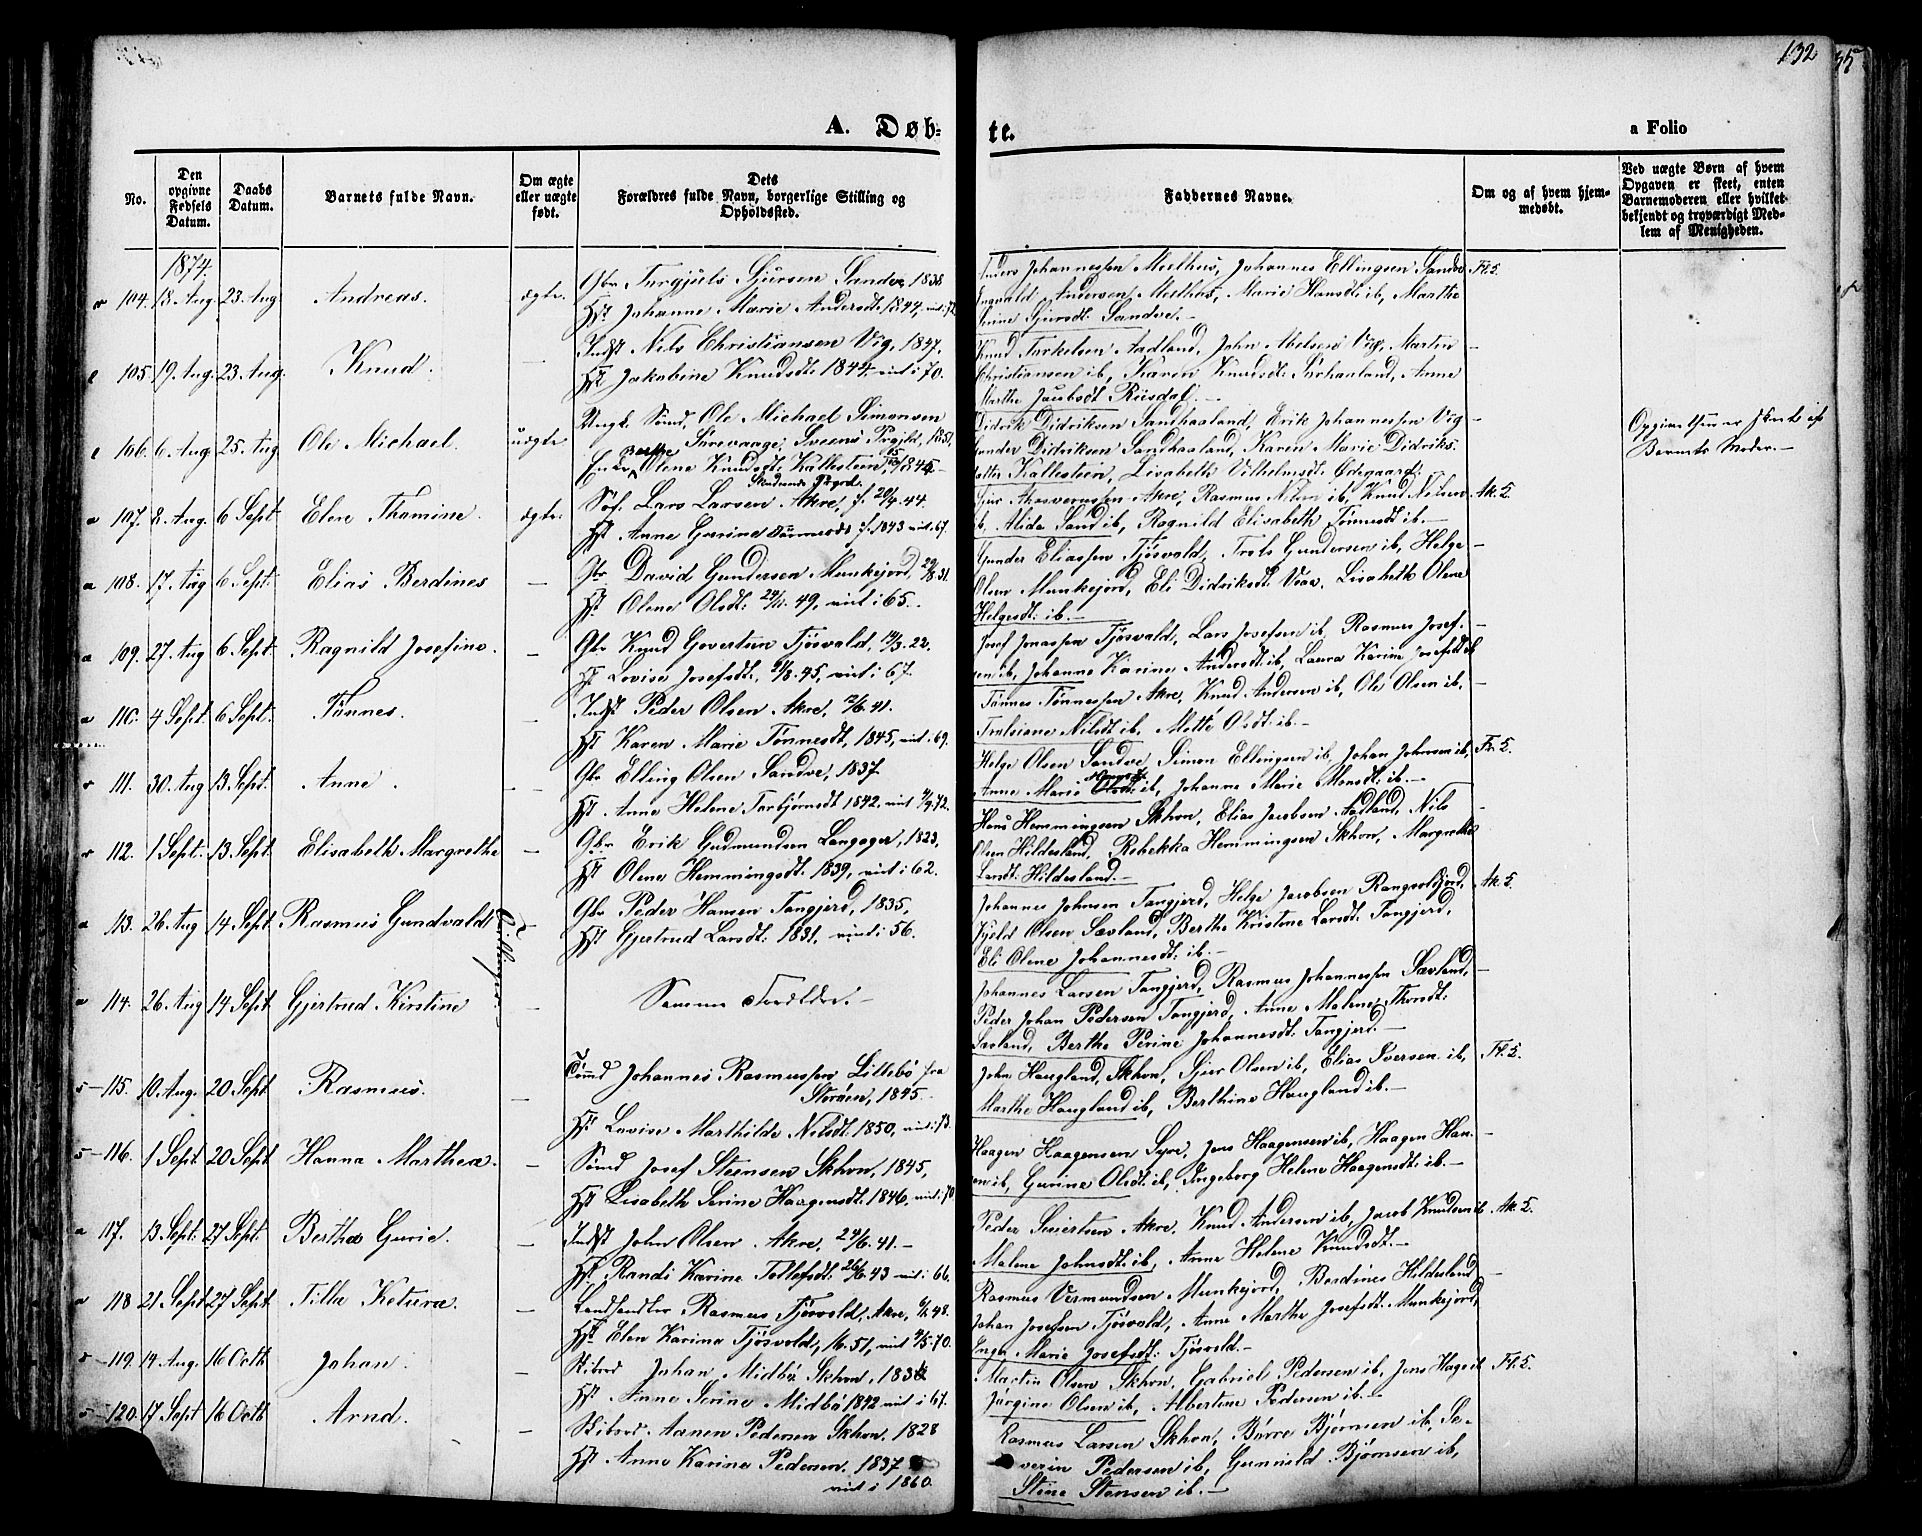 132
35
A. Døb-
te.
a Folio
No.
Den opgivne Fødsels Datum.
Daabs Datum.
Barnets fulde Navn.
Om ægte eller uægte født.
Dets Forældres fulde Navn, borgerlige Stilling og Opholdssted.
Faddernes Navne.
Om og af hvem hjemmedøbt.
Ved uægte Børn af hvem Opgaven er skeet, enten Barnemoderen eller hvilket bekjendt og troværdigt Medlem af Menigheden.
1874.
104. 18. Aug. 23. Aug Andreas. ægte.
Gbr Torgjuls Sjursen Sandve, 1838
Hst Johanne Marie Andersdt. 1844, vint i 72
Johannessen Meelhus, Johannes Ellingsen Sandve Fl. S.
Andersen Meelhus, Marie Hansdt. ib, Marthe
Serine Sjursdt. Sandve.
105. 19. Aug. 23. Aug. Knud. —
Indst Nils Christiansen Vig, 1847.
Hst Jakobine Knudsdt. 1844. vint i 70.
Knud Torkelsen Aadland, John Abelsen Vig, Martin —
Christiansen ib, Karen Knudsdt. Sørhaaland, Anne
Marthe Jacobsdt Riisdal. —
106. 6. Aug 25. Aug Ole Michael. uægte
Ungk. Sømd, Ole Michael Simonsen
Sveens Prgjld, 1851
Enke, Berthe Olene Knudsdt. Kallestein, 1845
Skudesnes Pgjld.
Didrik Didriksen Sandhaaland, Erik Johannessen Vig —
Gunder Didriksen Sandhaaland, Karen Marie Didriks-
datter Kallestein, Lisabeth Vilhelmsdt. Ødegaard.
Opgivelsen er skeet af
Barnets Moder. —
107. 8. Aug. 6 Sept. Elen Thomine. ægte.
Søf. Lars Larsen Akre, f. 20/4. 44.
Hst Anne Gurine Tønnesdt f. 1843 vint. 67.
Akre, Rasmus Nilsen ib, Knud Nilsen Ak. S.
ib, Alida Sand ib, Ragnild Elisabeth Tønnesdt ib. —
108. 17. Aug 6 Sept. Elias Berdines —
Gbr David Gundersen Munkejord, 29/8. 31.
Hst. Olene Olsdt. 24/11. 49, vint i 65.
Gunder Eliassen Tjøsvald, Trols Gundersen ib, Helge —
Olsen Munkejord, Eli Didriksdt. Vaa. Lisabeth Olene
Helgesdt. ib. —
109. 27. Aug 6 Sept. Ragnild Josefine. —
Gbr Knud Govertsen Tjøsvald, 14/3. 22.
Hst Lovise Josefsdt., 21/8. 45, vint i 67.
Josef Jonassen Tjøsvald, Lars Josefsen ib, Rasmus Josef- —
sen ib, Johanne Karine Andersdt. ib, Laura Karine Josefsdt ib
110. 4 Sept. 6 Sept. Tønnes. —
Indst Peder Olsen Akre, 2/6. 41.
Hst Karen Marie Tønnesdt, 1845, vint i 69.
Tønnes Tønnessen Akre, Knud Andersen ib, Ole Olsen ib, —
Nilsdt ib, Mette Olsdt. ib. —
111. 30. Aug 13 Sept. Anne —
Gbr Elling Olsen Sandve, 1837
Hst. Anne Helene Torbjørnsdt 1842. vint 4/9. 72.
Helge Olsen Sandve, Simon Ellingsen ib, Johan Johnsen ib, Fl. S.
Anne Marie ib, Johanne Marie Monsdt. ib. —
112. 1 Sept. 13 Sept. Elisabeth Margrethe —
Gbr Erik Gudmundsen Langager, 1823,
Hst Olene Hemmingsdt. 1839, vint i 62.
Hans Hemmingsen Skhvn, Elias Jacobsen Aadland, Nils —
Olsen Hildesland, Rebekka Hemmingsen Skhvn, Margrethe
Larsdt. Hildesland. —
113. 26. Aug 14 Sept. Rasmus Gundvaldt Tvillinger —
Gbr Peder Hansen Tangjerd, 1835,
Hst Gjertrud Larsdt. 1831, vint i 56.
Johannes Johnsen Tangjerd, Helge Jacobsen Rangvolkjord, Ak. S.
Kjeld Olsen Sævland, Berthe Kristine Larsdt. Tangjerd,
Eli Olene Johannesdt. ib. —
114. 26. Aug 14 Sept Gjertrud Kirstine —
Samme Forældre. —
Johannes Larsen Tangjerd, Rasmus Johannessen Sævland, —
Peder Johan Pedersen Tangjerd, Anne Malene Thorsdt.
Sævland, Berthe Serine Johannesdt. Tangjerd. —
115. 10. Aug. 20 Sept Rasmus. —
Sømd Johannes Rasmussen Litlebø fra
Storøen, 1845.
Hst Lovise Marthilde Nilsdt. 1850, vint i 73.
John Haugland, Skhvn, Sjur Olsen ib, Elias Iversen ib, Fl. S.
Marthe Haugland ib, Berthine Haugland ib. —
116. 1 Sept 20 Sept Hanna Marthea. —
Sømd Josef Steensen Skhvn, 1845,
Hst Lisabeth Serine Haagensdt. 1846, vint i 70
Haagen Haagensen Syre, Jens Haagensen ib, Haagen Han- —
sen ib, Gurine Olsdt. ib, Ingeborg Helene Haagensdt. ib. —
117. 13 Sept. 27 Sept. Bertha Gurie. —
Indst John Olsen Akre, 24/6. 41. —
Hst. Randi Karine Tollefsdt. 26/6. 43 vint i 66.
Peder Sivertsen Akre, Knud Andersen ib, Jacob Knudsen ib Ak. S.
Malene Johnsdt. ib, Anne Helene Knudsdt. —
118 21 Sept 27 Sept. Tilla Ketura. —
Landhandler Rasmus Tjøsvold, Akre, 48.
Hst. Elen Karina Tjøsvold, 16. 51, vint 4/5. 70.
Rasmus Vermundsen Munkejord, Berdines Hildesland —
Johan Josefsen Tjøsvold, Anne Marthe Josefsdt. Munkejord,
Inga Marie Josefsdt. Tjøsvold. —
119. 14 Aug. 16 Octb Johan. —
Skibsrd Johan Midbø Skhvn, 183
Hst. Anne Serine Midbø 1842 vint i 67.
Martin Olsen Skhvn, Gabriel Pedersen ib, Jens Hage ib Fl. S.
Jørgine Olsen ib, Albertine Pedersen ib. —
120. 17 Sept 16 Octb Arnd. —
Skibsrd Aanen Pedersen Skhvn. 1828
Hst Anne Karine Pedersen. 1837
vint i 1860.
Rasmus Larsen Skhvn, Børre Bjørnsen ib, Se-
verin Pedersen ib, Gunnild Bjørnsen ib,
Stine Stensen ib. —